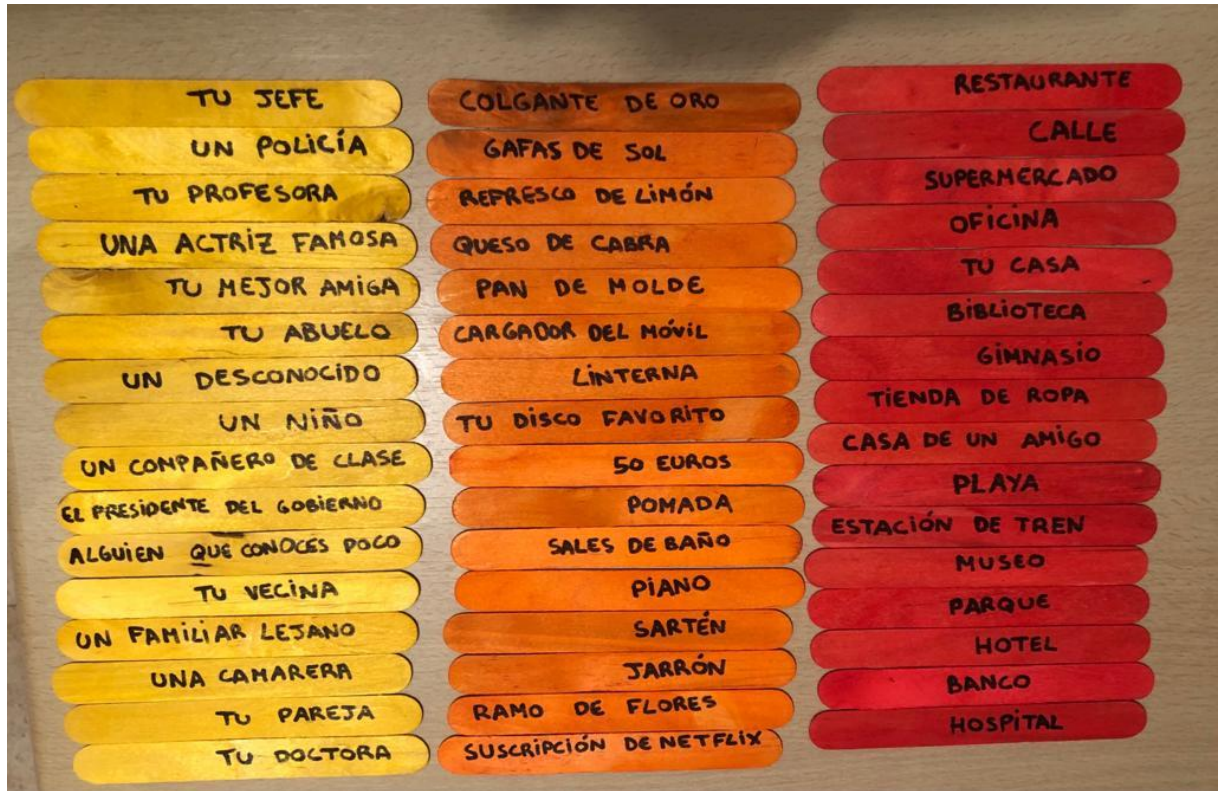 TU JEFE
UN POLICÍA
TU PROFESORA
UNA ACTRIZ FAMOSA
TU MEJOR AMIGA
TU ABUELO
UN DESCONOCIDO
UN NIÑO
UN COMPAÑERO DE CLASE
EL PRESIDENTE DEL GOBIERNO
ALGUIEN QUE CONOCES POCO
TU VECINA
UN FAMILIAR LEJANO
UNA CAMARERA
TU PAREJA
TU DOCTORA
COLGANTE DE ORO
GAFAS DE SOL
REFRESCO DE LIMÓN
QUESO DE CABRA
PAN DE MOLDE
CARGADOR DEL MÓVIL
LINTERNA
TU DISCO FAVORITO
50 EUROS
POMADA
SALES DE BAÑO
PIANO
SARTÉN
JARRÓN
RAMO DE FLORES
SUSCRIPCIÓN DE NETFLIX
RESTAURANTE
CALLE
SUPERMERCADO
OFICINA
TU CASA
BIBLIOTECA
GIMNASIO
TIENDA DE ROPA
CASA DE UN AMIGO
PLAYA
ESTACIÓN DE TREN
MUSEO
PARQUE
HOTEL
BANCO
HOSPITAL